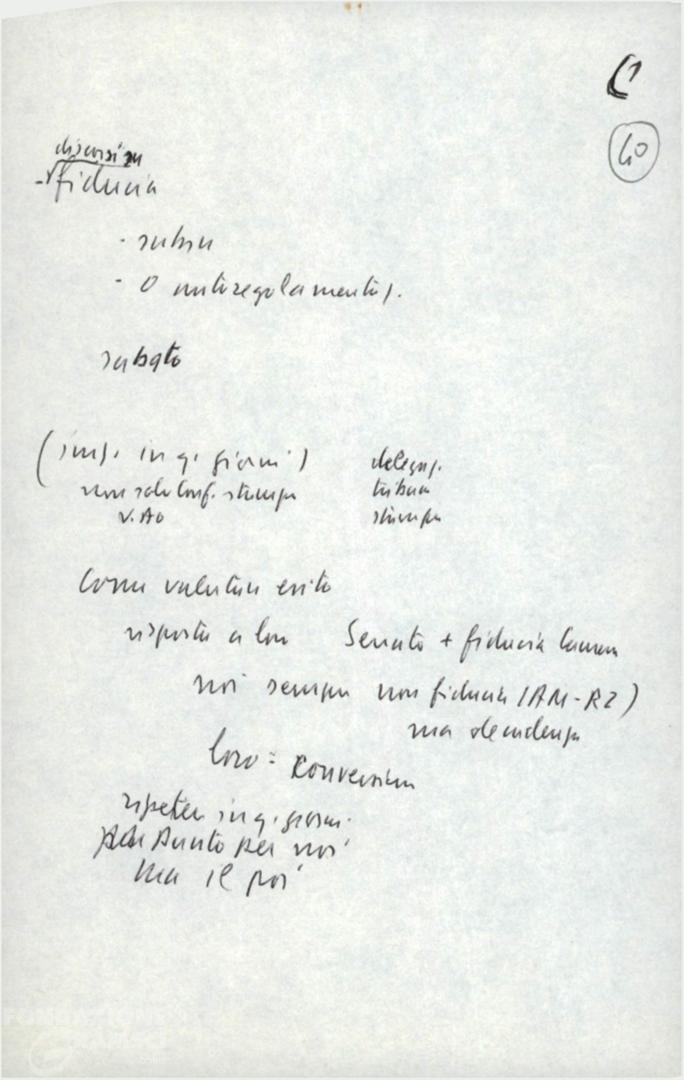 C
40
discussione
- fiducia
- subito
- o antiregolamentos.
sabato
(ins. in q. giorni)
non solo conf. stampa
V. AO
delegaz.
tribuna
stampa
Come valutare esito
risposta a loro Senato + fiducia Camera
noi sempre non fiducia (AM-RZ)
ma decadenza
loro = conversione
ripetere in q. giorni
per noi
ma il poi